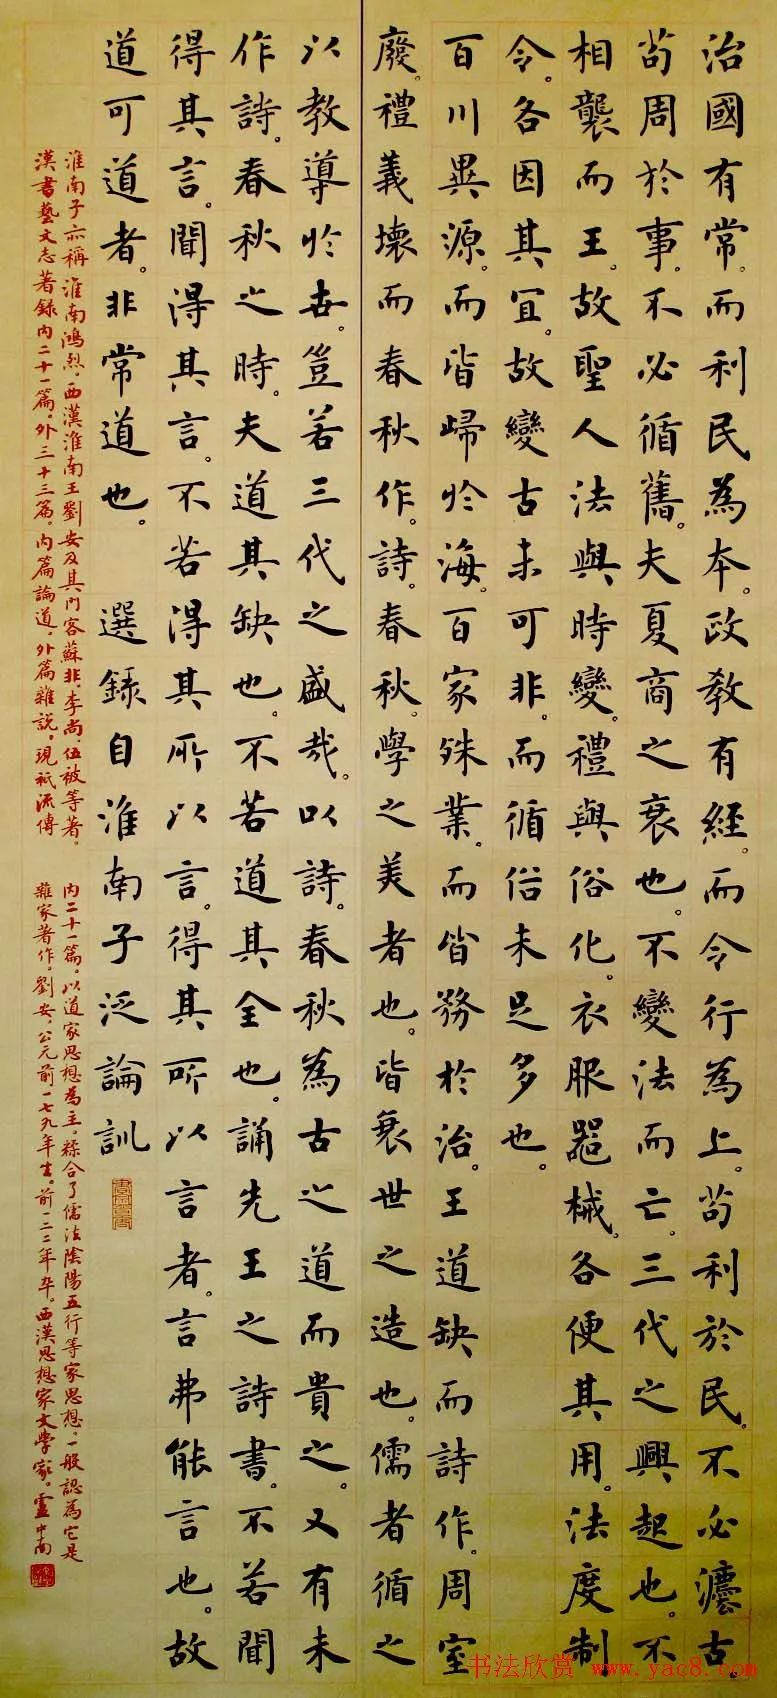 治國有常。而利民為本。政教有經。而令行為上。苟利於民。不必灋古。
苟周於事。不必循舊。夫夏商之衰也。不變法而亡。三代之興起也。不
相襲而王。故聖人法與時變。禮與俗化。衣服器械。各便其用。法度制
令。各因其宜。故變古未可非。而循俗未足多也。
百川異源。而皆歸於海。百家殊業。而皆務於治。王道缺而詩作。周室
廢。禮義壞而春秋作。詩。春秋。學之美者也。皆衰世之造也。儒者循之
以教導於世。豈若三代之盛哉。以詩。春秋為古之道而貴之。又有未
作詩。春秋之時。夫道其缺也。不若道其全也。誦先王之詩書。不若聞
得其言。聞得其言。不若得其所以言。得其所以言者。言弗能言也。故
道可道者。非常道也。 選錄自淮南子泛論訓
淮南子亦稱淮南鴻烈。西漢淮南王劉安及其門客蘇非。李尚。伍被等著。
漢書藝文志著錄內二十一篇。外三十三篇。內篇論道。外篇雜說。現祇流傳
內二十一篇。以道家思想為主。糅合了儒法陰陽五行等家思想。一般認為它是
雜家著作。劉安。公元前一七九年生。前一二二年卒。西漢思想家文學家。盧中南
书法欣赏 www.yac8.com